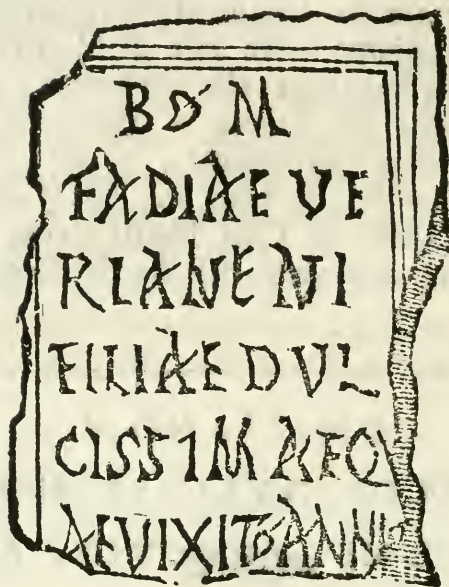 B D M
FADIAE VE
RIANE NI
FILIAE DVL
CISSIMAE Q
AE VIXIT ANNI